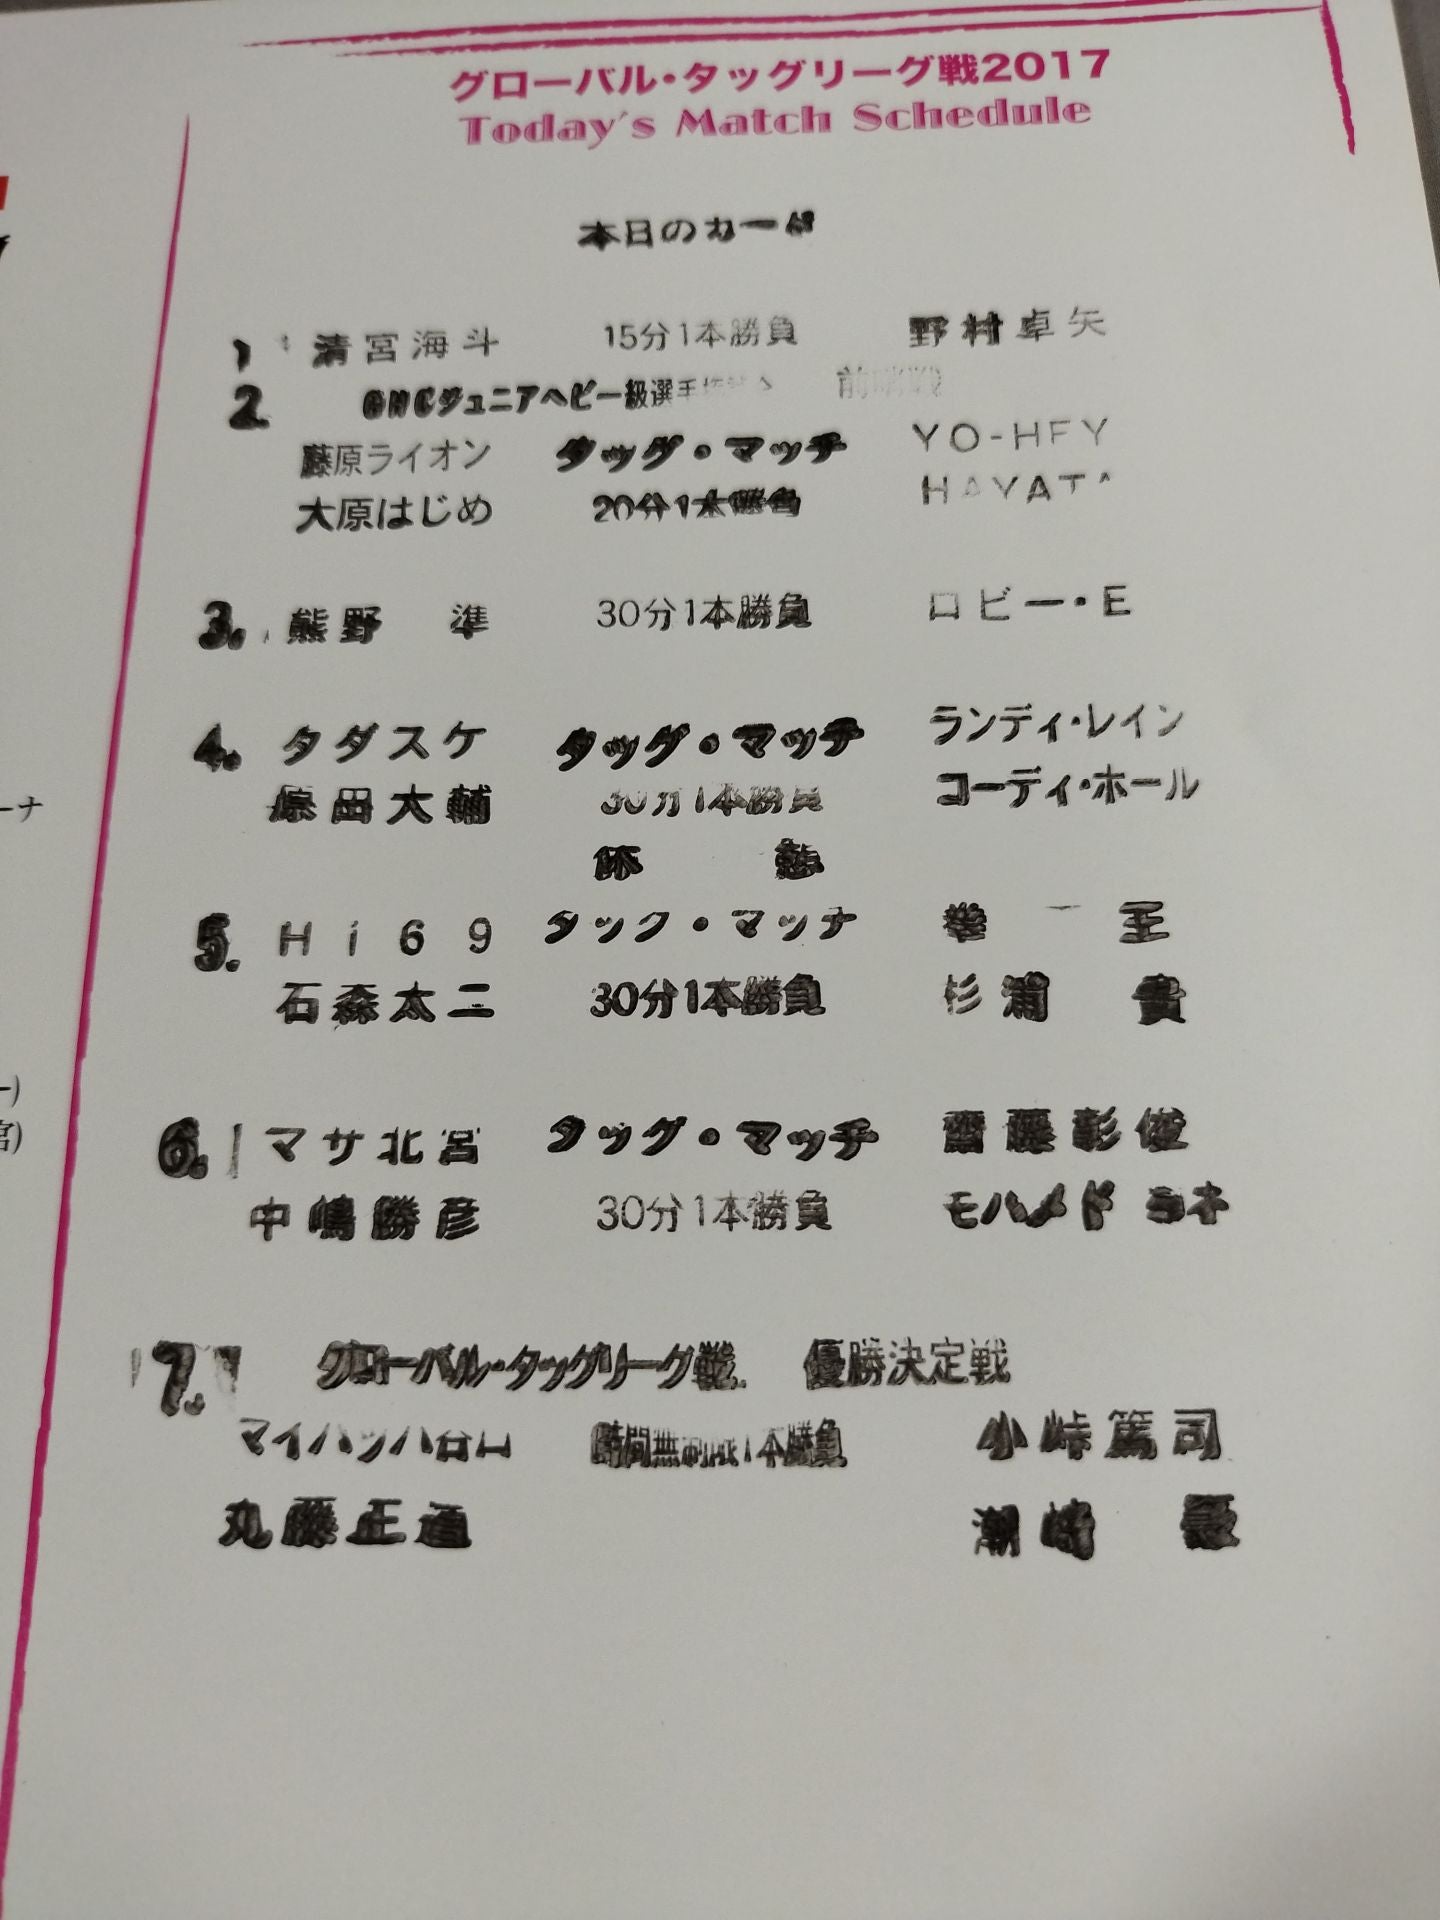 グローバル・タッグリーグ戦2017
Today's Match Schedule
本日のカード
1 清宮海斗 15分1本勝負 野村卓矢
2 GHCジュニアヘビー級選手権試合 前哨戦
藤原ライオン タッグ・マッチ YO-HEY
大原はじめ 20分1本勝負 HAYATA
3. 熊野 準 30分1本勝負 ロビー・E
4. タダスケ タッグ・マッチ ランディ・レイン
原田大輔 30分1本勝負 コーディ・ホール
休 憩
5. Hi69 タッグ・マッチ 拳 王
石森太二 30分1本勝負 杉浦 貴
6. マサ北宮 タッグ・マッチ 齋藤彰俊
中嶋勝彦 30分1本勝負 モハメド ヨネ
7. グローバル・タッグリーグ戦 優勝決定戦
マイバッハ谷口 時間無制限1本勝負 小峠篤司
丸藤正道 潮崎 豪
ーナ
ー)
宮)